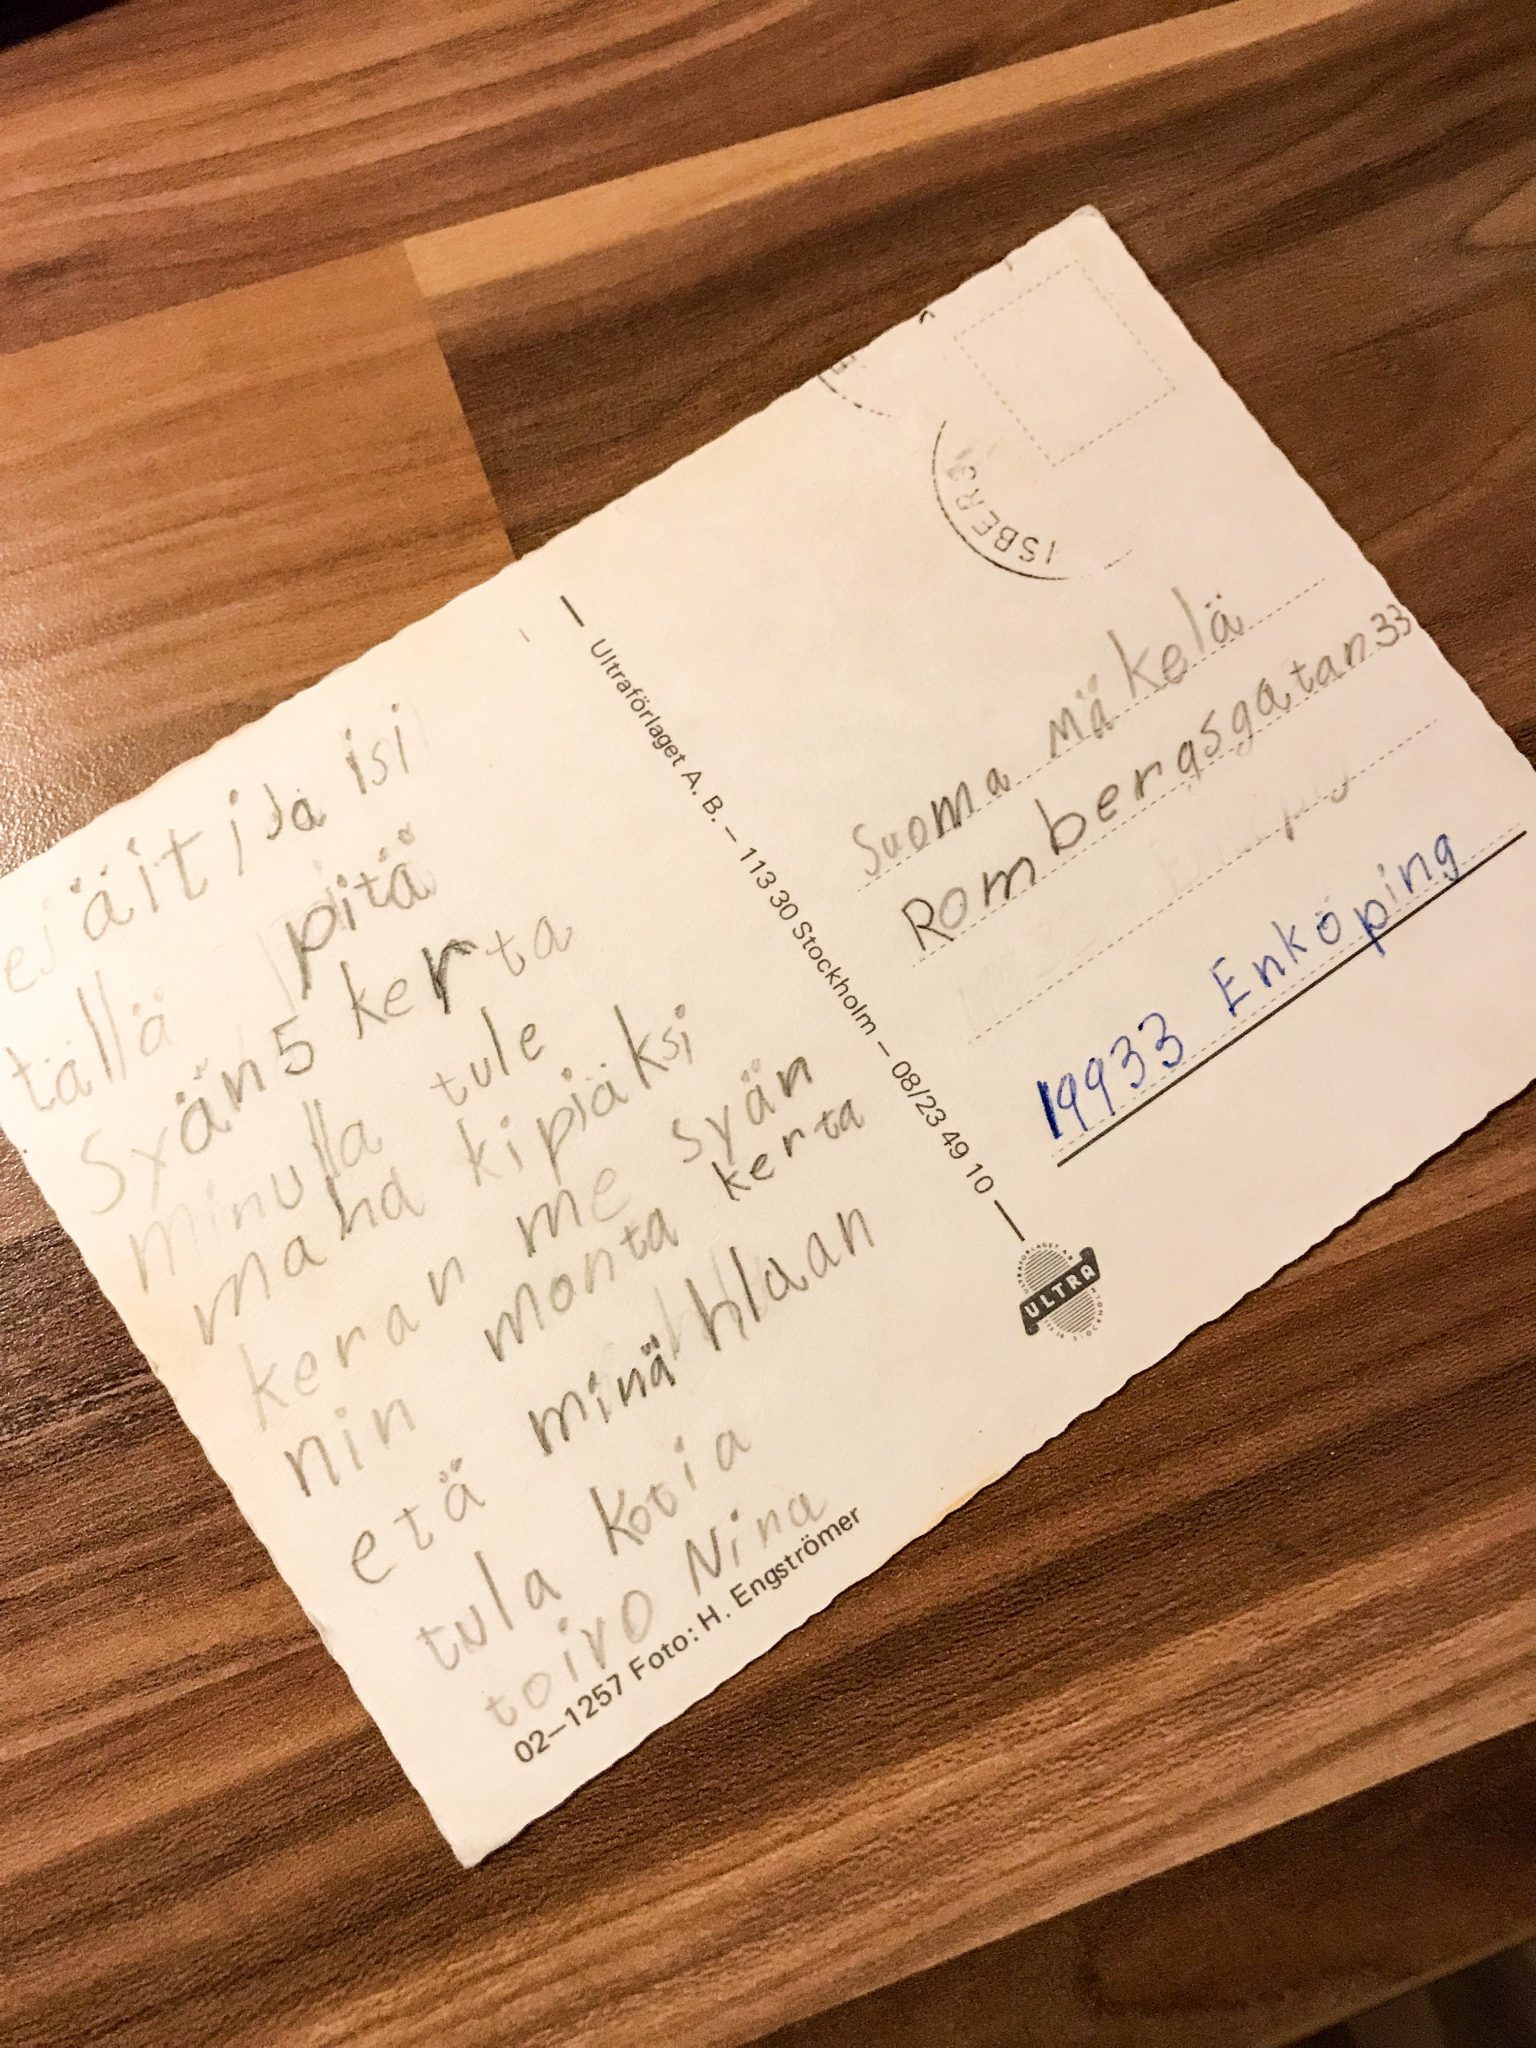 ej äiti ja isi
tällä pitä
Syän 5 kerta
minulla tule
maha kipiäksi
keran me syän
nin monta kerta
etä minä hlaan
tula kotia
toivo Nina
02–1257 Foto: H. Engströmer
Ultraförlaget A. B. – 113 30 Stockholm – 08/23 49 10
ULTRA
ISBERG
Suoma mäkelä
Rombergsgatan 33
19933 Enköping